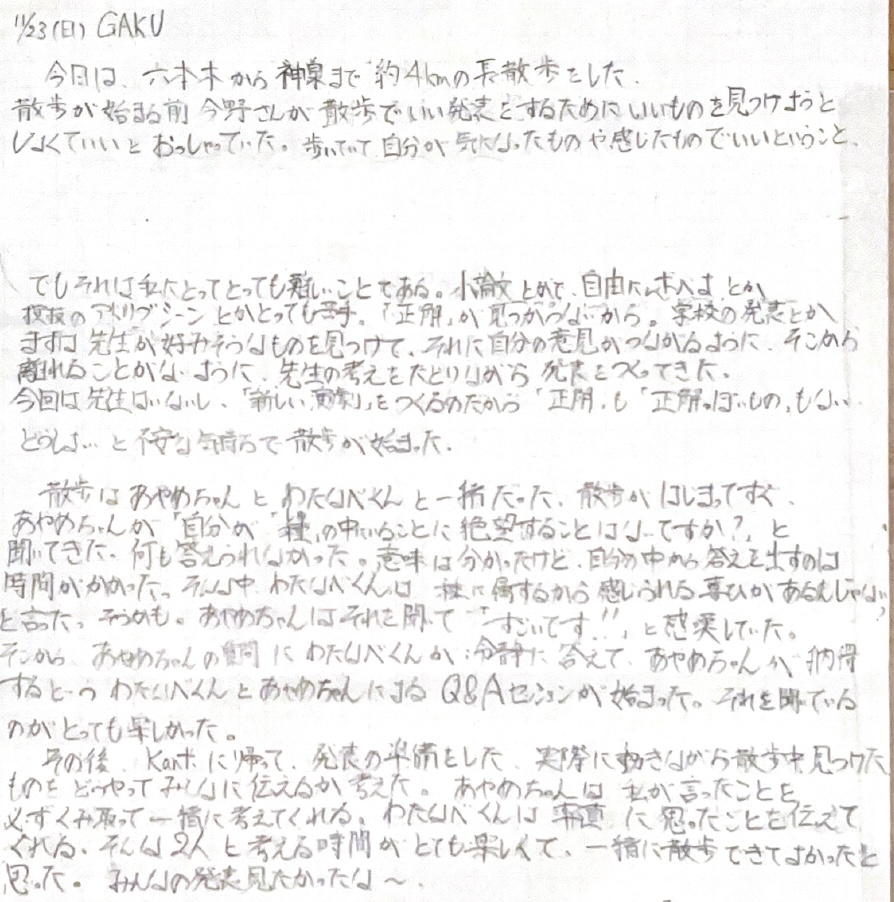 11/23(日) GAKU
今日は、六本木から神泉まで約4kmの長散歩をした。
散歩が始まる前 今野さんが散歩でいい発表をするためにいいものを見つけようと
しなくていいとおっしゃっていた。歩いてて自分が気になったものや感じたものでいいということ、
でもそれは私にとってとっても難しいことである。小論文とかで、自由に述べよ とか
演技の アドリブシーン とかとっても苦手。「正解」が見つからないから。学校の発表とか
まずは先生が好みそうなものを見つけて、それに自分の意見がつながるように、そこから
離れることがないように、先生の考えをたどりながら発表をつくってきた。
今回は先生はいないし、「新しい演劇」をつくるのだから「正解」も「正解っぽいもの」もない…
どうしよ… と不安な気持ちで散歩が始まった。
散歩は あやめちゃん と わたなべくん と一緒だった。散歩がはじまってすぐ、
あやめちゃんが「自分が「種」の中にいることに絶望することはないですか?」と
聞いてきた。何も答えられなかった。意味は分かったけど、自分の中から答えを出すのは
時間がかかった。そんな中 わたなべくんは 種に属するから感じられる喜びがあるんじゃない?
と言った。そうかも。あやめちゃんはそれを聞いて「すごいです!!」と感激していた。
そこから、あやめちゃんの質問にわたなべくんが冷静に答えて、あやめちゃんが納得
するという わたなべくんとあやめちゃんによる Q&Aセッションが始まった。それを聞いている
のがとっても楽しかった。
その後、Kanボに帰って、発表の準備をした。実際に動きながら散歩中見つけた
ものをどうやってみんなに伝えるか考えた。あやめちゃんは 私が言ったことを
必ずくみ取って一緒に考えてくれる。わたなべくんは 率直に思ったことを伝えて
くれる。そんな2人と考える時間がとても楽しくて、一緒に散歩できてよかったと
思った。みんなの発表見たかったな〜。